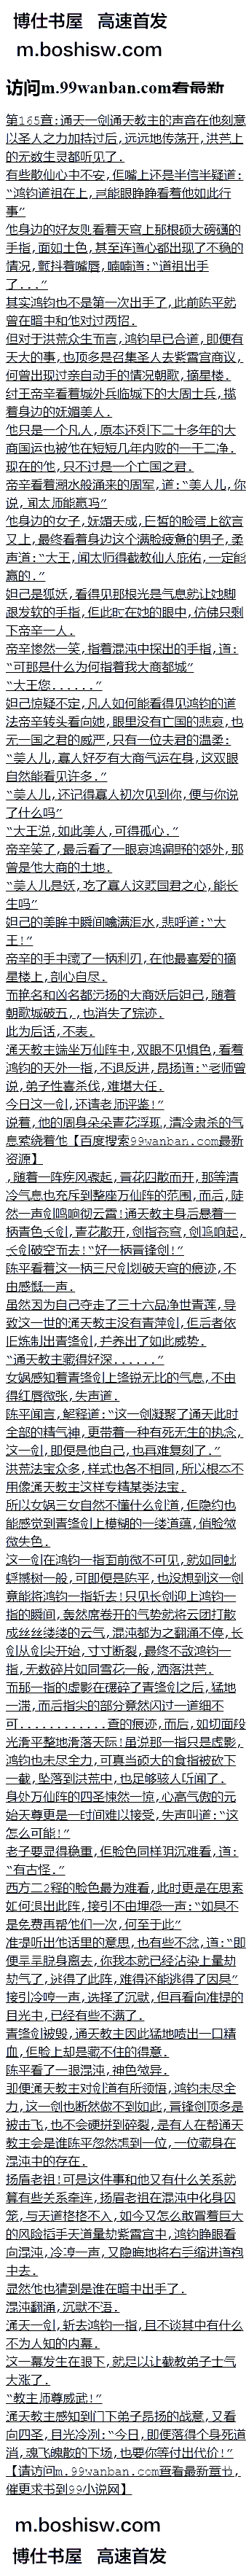 博仕书屋 高速首发
m.boshisw.com
访问m.99wanban.com看最新
第165章:通天一剑通天教主的声音在他刻意
以圣人之力加持过后,远远地传荡开,洪荒上
的无数生灵都听见了.
有些散仙心中不安,但嘴上还是半信半疑道:
“鸿钧道祖在上,岂能眼睁睁看着他如此行
事”
他身边的好友则看着天穹上那根硕大磅礴的
手指,面如土色,甚至连道心都出现了不稳的
情况,颤抖着嘴唇,喃喃道:“道祖出手
了...”
其实鸿钧也不是第一次出手了,此前陈平就
曾在暗中和他对过两招.
但对于洪荒众生而言,鸿钧早已合道,即便有
天大的事,也顶多是召集圣人去紫霄宫商议,
何曾出现过亲自动手的情况朝歌,摘星楼.
纣王帝辛看着城外兵临城下的大周士兵,揽
着身边的妖媚美人.
他只是一个凡人,原本还剩下二十多年的大
商国运也被他在短短几年内败的一干二净.
现在的他,只不过是一个亡国之君.
帝辛看着潮水般涌来的周军,道:“美人儿,你
说,闻太师能赢吗”
他身边的女子,妖媚天成,白皙的脸弯上欲言
又止,最终看着身边这个满脸疲惫的男子,柔
声道:“大王,闻太师得截教仙人庇佑,一定能
赢的.”
妲己是狐妖,看得见那根光是气息就让她脚
跟发软的手指,但此时在她的眼中,仿佛只剩
下帝辛一人.
帝辛惨然一笑,指着混沌中探出的手指,道:
“可那是什么为何指着我大商都城”
“大王您......”
妲己惊疑不定,凡人如何能看得见鸿钧的道
法帝辛转头看向她,眼里没有亡国的悲哀,也
无一国之君的威严,只有一位夫君的温柔:
“美人儿,寡人好歹有大商气运在身,这双眼
自然能看见许多.”
“美人儿,还记得寡人初次见到你,便与你说
了什么吗”
“大王说,如此美人,可得孤心.”
帝辛笑了,最后看了一眼哀鸿遍野的郊外,那
曾是他大商的土地.
“美人儿是妖,吃了寡人这颗国君之心,能长
生吗”
妲己的美眸中瞬间噙满泪水,悲呼道:“大
王!”
帝辛的手中藏了一柄利刃,在他最喜爱的摘
星楼上,剖心自尽.
而艳名和凶名都远扬的大商妖后妲己,随着
朝歌城破五,,也消失了踪迹.
此为后话,不表.
通天教主端坐万仙阵中,双眼不见惧色,看着
鸿钧的天外一指,不退反进,昂扬道:“老师曾
说,弟子性喜杀伐,难堪大任.
今日这一剑,还请老师评鉴!”
说着,他的周身朵朵青花浮现,清冷肃杀的气
息萦绕着他【百度搜索99wanban.com最新
资源】
,随着一阵疾风骤起,青花四散而开,那等清
冷气息也充斥到整座万仙阵的范围,而后,陡
然一声剑鸣响彻云霄!通天教主身后悬着一
柄青色长剑,青花散开,剑指苍穹,剑鸣响起,
长剑破空而去!“好一柄青锋剑!”
陈平看着这一柄三尺剑划破天穹的痕迹,不
由感慨一声.
虽然因为自己夺走了三十六品净世青莲,导
致这一世的通天教主没有青萍剑,但后者依
旧炼制出青锋剑,并养出了如此威势.
“通天教主藏得好深......”
女娲感知着青锋剑上锋锐无比的气息,不由
得红唇微张,失声道.
陈平闻言,解释道:“这一剑凝聚了通天此时
全部的精气神,更带着一种有死无生的执念,
这一剑,即便是他自己,也再难复刻了.”
洪荒法宝众多,样式也各不相同,所以根本不
用像通天教主这样专精某类法宝.
所以女娲三女自然不懂什么剑道,但隐约也
能感觉到青锋剑上模糊的一缕道蕴,俏脸微
微失色.
这一剑在鸿钧一指面前微不可见,就如同蚍
蜉撼树一般,可即便是陈平,也没想到这一剑
竟能将鸿钧一指斩去!只见长剑迎上鸿钧一
指的瞬间,轰然席卷开的气势就将云团打散
成丝丝缕缕的云气,混沌都为之翻涌不停,长
剑从剑尖开始,寸寸断裂,最终不敌鸿钧一
指,无数碎片如同雪花一般,洒落洪荒.
而那一指的虚影在碾碎了青锋剑之后,猛地
一滞,而后指尖的部分竟然闪过一道细不
可............查的痕迹,而后,如切面段
光滑平整地滑落天际!虽说那一指只是虚影,
鸿钧也未尽全力,可真当硕大的食指被砍下
一截,坠落到洪荒中,也足够骇人听闻了.
身处万仙阵的四圣悚然一惊,心高气傲的元
始天尊更是一时间难以接受,失声叫道:“这
怎么可能!”
老子要显得稳重,但脸色同样阴沉难看,道:
“有古怪.”
西方二2释的脸色最为难看,此时更是在思索
如何退出此阵,接引不由埋怨一声:“如果不
是免费再帮他们一次,何至于此”
准提听出他话里的意思,也有些不忿,道:“即
便早早脱身离去,你我本就已经沾染上量劫
劫气了,逃得了此阵,难得还能逃得了因果”
接引冷哼一声,选择了沉默,但再看向准提的
目光中,已经有些不满了.
青锋剑被毁,通天教主因此猛地喷出一口精
血,但脸上却是藏不住的得意.
陈平看了一眼混沌,神色微异.
即便通天教主对剑道有所领悟,鸿钧未尽全
力,这一剑也断然做不到如此,青锋剑顶多是
被击飞,也不会硬拼到碎裂,是有人在帮通天
教主会是谁陈平忽然想到一位,一位藏身在
混沌中的存在.
扬眉老祖!可是这件事和他又有什么关系就
算有些关系牵连,扬眉老祖在混沌中化身囚
笼,与天道格格不入,如今又怎么敢冒着巨大
的风险插手天道量劫紫霄宫中,鸿钧睁眼看
向混沌,冷哼一声,又隐晦地将右手缩进道袍
中去.
显然他也猜到是谁在暗中出手了.
混沌翻涌,沉默不语.
通天一剑,斩去鸿钧一指,且不谈其中有什么
不为人知的内幕.
这一幕发生在眼下,就足以让截教弟子士气
大涨了.
“教主师尊威武!”
通天教主感知到门下弟子昂扬的战意,又看
向四圣,目光冷冽:“今日,即便落得个身死道
消,魂飞魄散的下场,也要你等付出代价!”
【请访问m.99wanban.com查看最新章节,
催更求书到99小说网】
m.boshisw.com
博仕书屋 高速首发